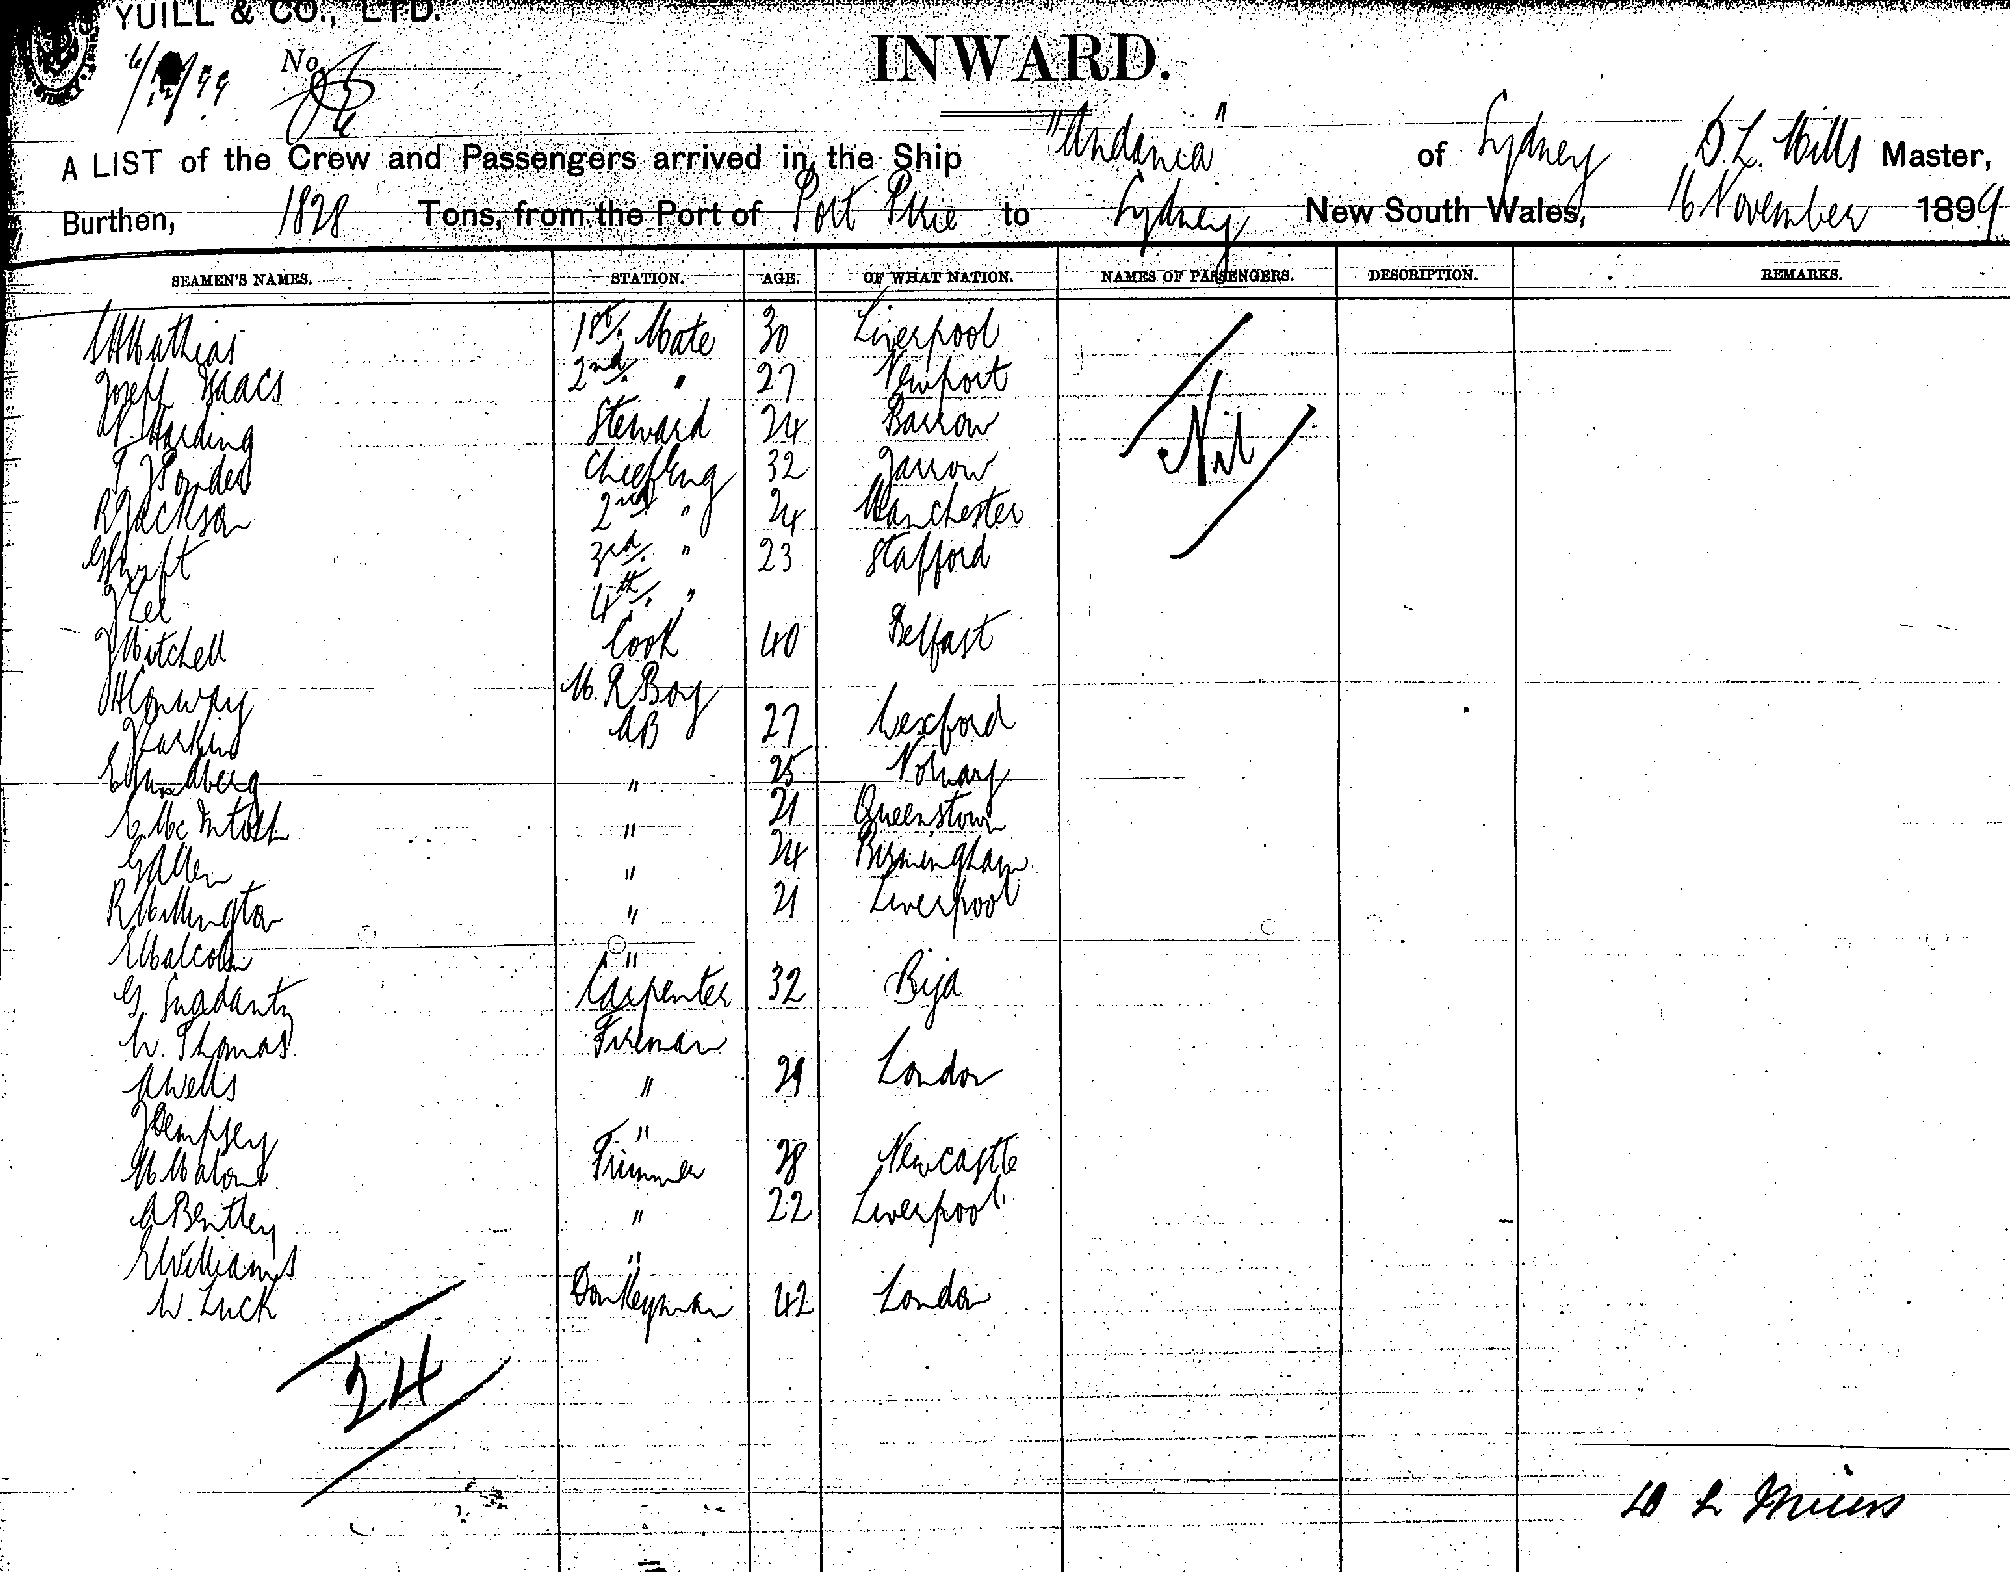 YUILL & CO., LTD.
No.
INWARD.
A LIST of the Crew and Passengers arrived in the Ship "Andania" of Sydney D. L. Mills Master,
Burthen, 1828 Tons, from the Port of Port Pirie to Sydney New South Wales, 16 November 1899
SEAMEN'S NAMES. STATION. AGE. OF WHAT NATION. NAMES OF PASSENGERS. DESCRIPTION. REMARKS.
Mathias 1st. Mate 30 Liverpool
Joseph Isaacs 2nd. " 27 Newport
Harding Steward 24 Barrow
Chief Eng 32 Jarrow
Nil
R Jackson 2nd " 24 Manchester
3rd. " 23 Stafford
J Lee 4th. "
J Mitchell Cook 40 Belfast
Conway M. R Boy
J Larkin AB 27 Wexford
" 25 Norway
McIntosh " 21 Queenstown
G Allen " 24 Birmingham
R Millington " 21 Liverpool
Malcolm "
G. Carpenter 32 Riga
W. Thomas Fireman
A Wells " 29 London
J Dempsey "
M Malone Trimmer 28 Newcastle
A Bentley " 22 Liverpool
E Williams "
W. Luck Donkeyman 42 London
24
D L Mills